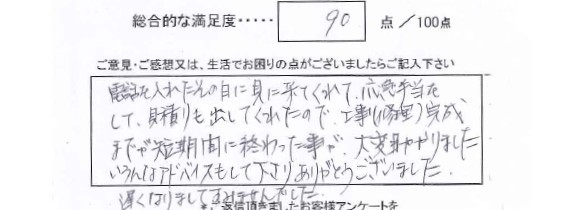 総合的な満足度・・・・・ 90 点／100点
ご意見・ご感想又は、生活でお困りの点がございましたらご記入下さい
電話を入れたその日に見に来てくれて、応急手当を
して、見積りも出してくれたので、工事(修理)完成
までが短期間に終わった事が、大変助かりました
いろんなアドバイスもして下さりありがとうございました。
遅くなりましてすみませんでした。
返信頂きましたお客様アンケートを